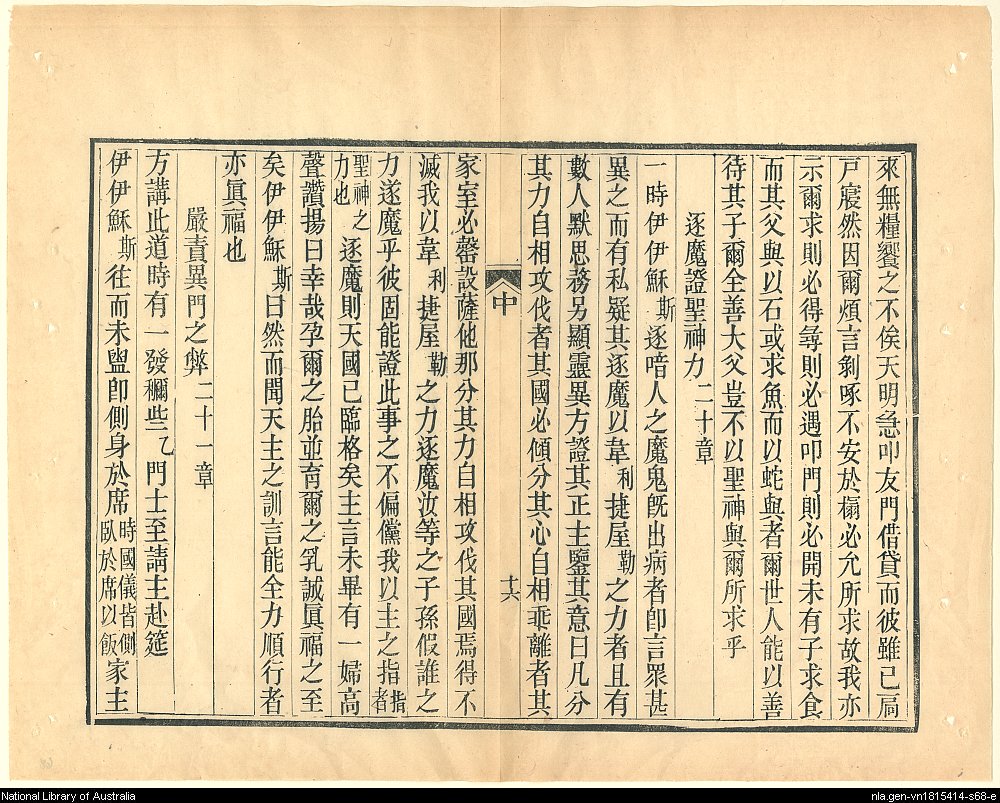 來無糧饗之不俟天明急叩友門借貸而彼雖已扃
戸寢然因爾煩言剝啄不安於榻必允所求故我亦
示爾求則必得尋則必遇叩門則必開未有子求食
而其父與以石或求魚而以蛇與者爾世人能以善
待其子爾全善大父豈不以聖神與爾所求乎
逐魔證聖神力二十章
一時伊伊穌斯逐喑人之魔鬼旣出病者卽言眾甚
異之而有私疑其逐魔以韋利捷屋勒之力者且有
數人默思務另顯靈異方證其正主鑒其意曰凡分
其力自相攻伐者其國必傾分其心自相乖離者其
中
十六
家室必罄設薩他那分其力自相攻伐其國焉得不
滅我以韋利捷屋勒之力逐魔汝等之子孫假誰之
力遂魔乎彼固能證此事之不偏儻我以主之指指者
聖神之力也逐魔則天國已臨格矣主言未畢有一婦高
聲讚揚曰幸哉孕爾之胎並育爾之乳誠眞福之至
矣伊伊穌斯曰然而聞天主之訓言能全力順行者
亦眞福也
嚴責異門之獘二十一章
方講此道時有一發穪些乙門士至請主赴筵
伊伊穌斯往而未盥卽側身於席時國儀皆側臥於席以飯家主
National Library of Australia
nla.gen-vn1815414-s68-e